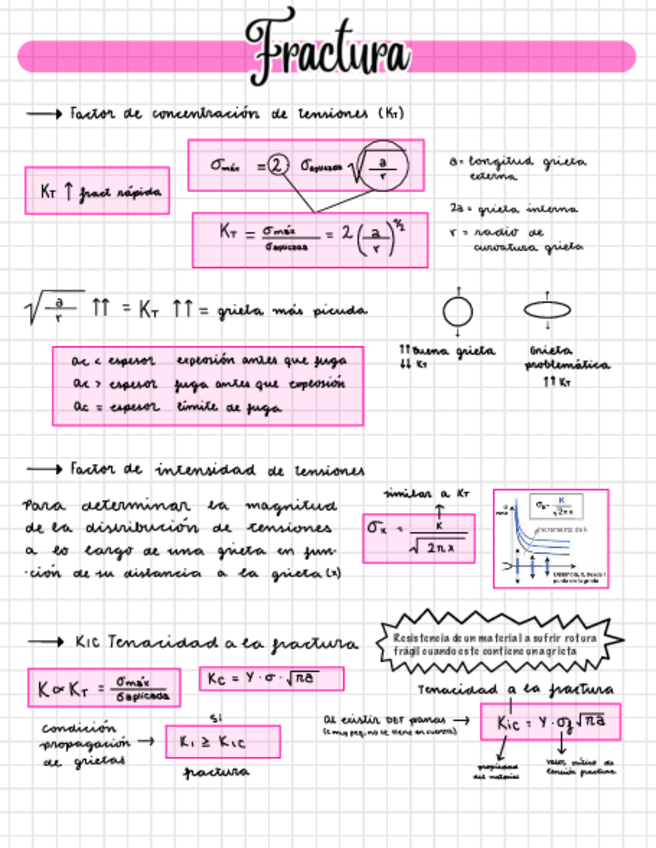 Fractura
→ Factor de concentración de tensiones (KT)
KT ↑ fract rápida
σmáx = 2 σaplicada √(a/r)
KT = σmáx/σaplicada = 2 (a/r)^1/2
a = longitud grieta externa
2a = grieta interna
r = radio de curvatura grieta
√(a/r) ↑↑ = KT ↑↑ = grieta más picuda
↑↑ Buena grieta
↓↓ KT
Grieta
problemática
↑↑ KT
ac < espesor explosión antes que fuga
ac > espesor fuga antes que explosión
ac = espesor límite de fuga
→ Factor de intensidad de tensiones
Para determinar la magnitud
de la distribución de tensiones
a lo largo de una grieta en fun-
-ción de su distancia a la grieta (x)
similar a KT
σx = K/√(2πx)
σx = K/√(2πx)
Incremento de k
Distancia, x, desde l
punta de la grieta
→ KIC Tenacidad a la fractura
Resistencia de un material a sufrir rotura
frágil cuando este contiene una grieta
K ∝ KT = σmáx/σaplicada
Kc = Y · σ · √πa
Tenacidad a la fractura
Condición
propagación →
de grietas
si
KI ≥ KIC
fractura
Al existir DEF planas →
KIC = Y · σf √πa
propiedad
del material
valor crítico de
tensión fractura